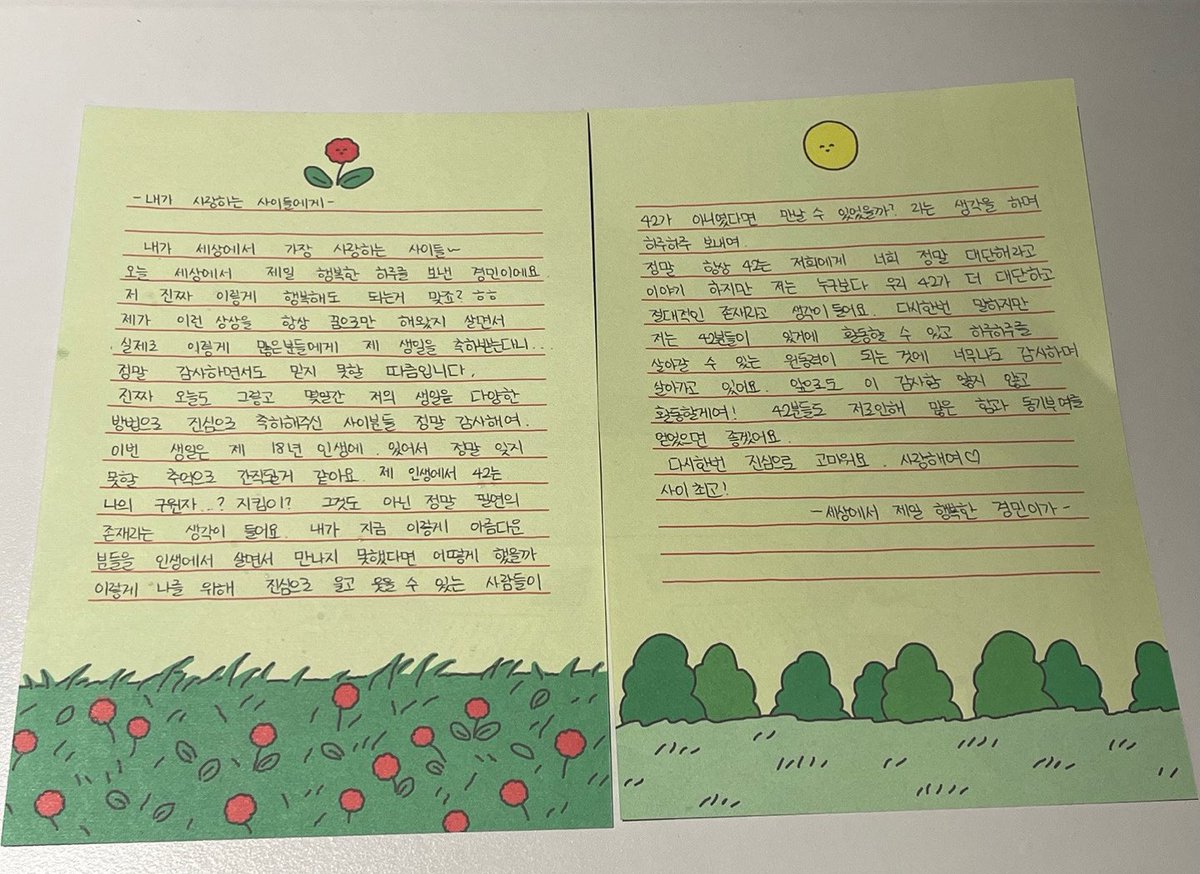 - 내가 사랑하는 사이들에게 -
내가 세상에서 가장 사랑하는 사이들~
오늘 세상에서 제일 행복한 하루를 보낸 경민이에요.
저 진짜 이렇게 행복해도 되는거 맞죠? ㅎㅎ
제가 이런 상상을 항상 꿈으로만 해왔지 살면서
실제로 이렇게 많은분들에게 제 생일을 축하받는다니..
정말 감사하면서도 믿지 못할 따름입니다.
진짜 오늘도 그렇고 몇일간 저의 생일을 다양한
방법으로 진심으로 축하해주신 사이분들 정말 감사해여.
이번 생일은 제 18년 인생에 있어서 정말 잊지
못할 추억으로 간직될거 같아요. 제 인생에서 42는
나의 구원자..? 지킴이? 그것도 아닌 정말 필연의
존재라는 생각이 들어요. 내가 지금 이렇게 아름다운
분들을 인생에서 살면서 만나지 못했다면 어떻게 했을까
이렇게 나를 위해 진심으로 울고 웃을 수 있는 사람들이
42가 아니였다면 만날 수 있었을까? 라는 생각을 하며
하루하루 보내여.
정말 항상 42는 저희에게 너희 정말 대단해라고
이야기 하지만 저는 누구보다 우리 42가 더 대단하고
절대적인 존재라고 생각이 들어요. 다시한번 말하지만
저는 42분들이 있기에 활동할 수 있고 하루하루를
살아갈 수 있는 원동력이 되는 것에 너무나도 감사하며
살아가고 있어요. 앞으로도 이 감사함 잃지 않고
활동할게여! 42분들도 저로인해 많은 힘과 동기부여를
얻었으면 좋겠어요.
다시한번 진심으로 고마워요. 사랑해여♡
사이 최고!
- 세상에서 제일 행복한 경민이가 -